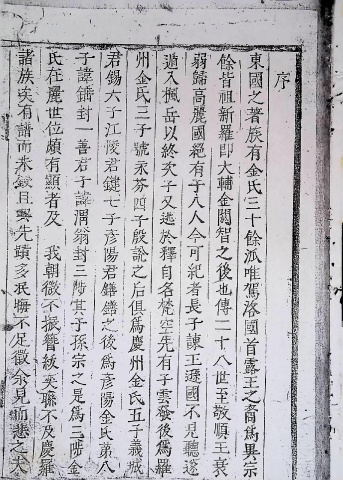 序
東國之著族有金氏三十餘派唯駕洛國首露王之裔爲異宗
餘皆祖新羅卽大輔金閼智之後也傳二十八世至敬順王衰
弱歸高麗國絶有子八人今可紀者長子諫王遜國不見聽遂
遁入楓岳以終次子又逃於釋自名梵空先有子雲發後爲羅
州金氏三子號永芬四子殷說之后俱爲慶州金氏五子義城
君錫六子江陵君鍵七子彦陽君鐥鐥之後爲彦陽金氏第八
子諱鍤封一善君子諱渭翁封三陟其子孫宗之是爲三陟金
氏在麗世位頗有顯者及 我朝微不振簪紱矣聯不及慶羅
諸族矣有譜而未鋟且 先蹟多 晦不足徵余見而悲之大